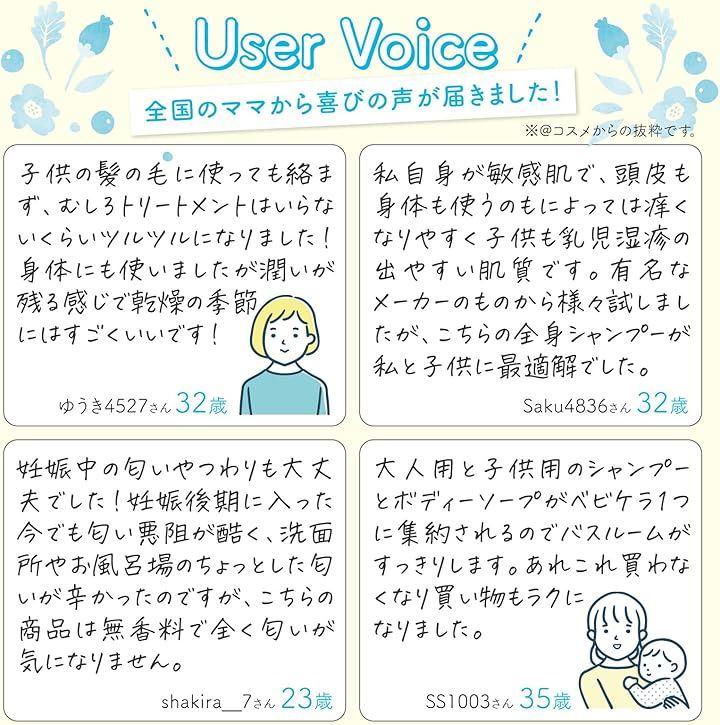 User Voice
全国のママから喜びの声が届きました！
※@コスメからの抜粋です。
子供の髪の毛に使っても絡ま
ず、むしろトリートメントはいらな
いくらいツルツルになりました！
身体にも使いましたが潤いが
残る感じで乾燥の季節
にはすごくいいです！
ゆうき4527さん 32歳
私自身が敏感肌で、頭皮も
身体も使うのもによっては痒く
なりやすく子供も乳児湿疹の
出やすい肌質です。有名な
メーカーのものから様々試しまし
たが、こちらの全身シャンプーが
私と子供に最適解でした。
Saku4836さん 32歳
妊娠中の匂いやつわりも大丈
夫でした！妊娠後期に入った
今でも匂い悪阻が酷く、洗面
所やお風呂場のちょっとした匂
いが辛かったのですが、こちらの
商品は無香料で全く匂いが
気になりません。
shakira__7さん 23歳
大人用と子供用のシャンプー
とボディーソープがベビケラ1つ
に集約されるのでバスルームが
すっきりします。あれこれ買わな
くなり買い物もラクに
なりました。
SS1003さん 35歳